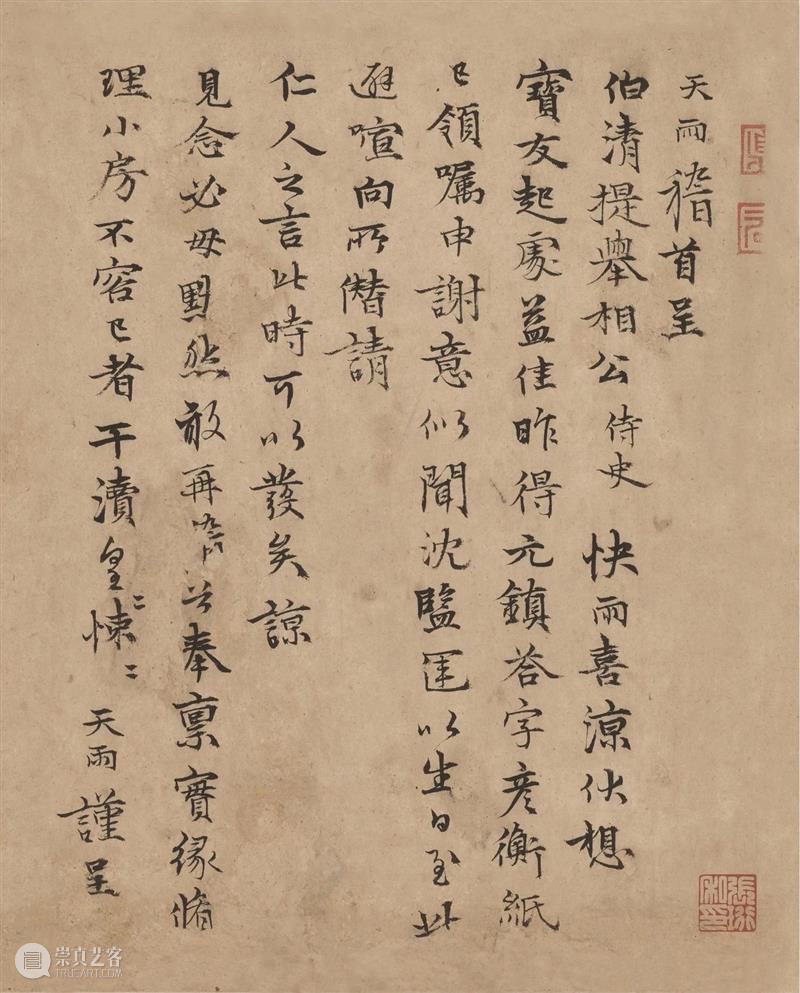 天雨稽首呈
伯清提舉相公侍史 快雨喜涼伏想
寶友起處益佳昨得元鎮荅字彥衡紙
已領囑申謝意似聞沈監運以生日至此
避喧向所僭請
仁人之言此時可以發矣諒
見念必毋默然敢再稽首奉稟實緣脩
理小房不容已者干瀆皇〻悚〻
天雨謹呈
崇真艺客
TRUEART.COM